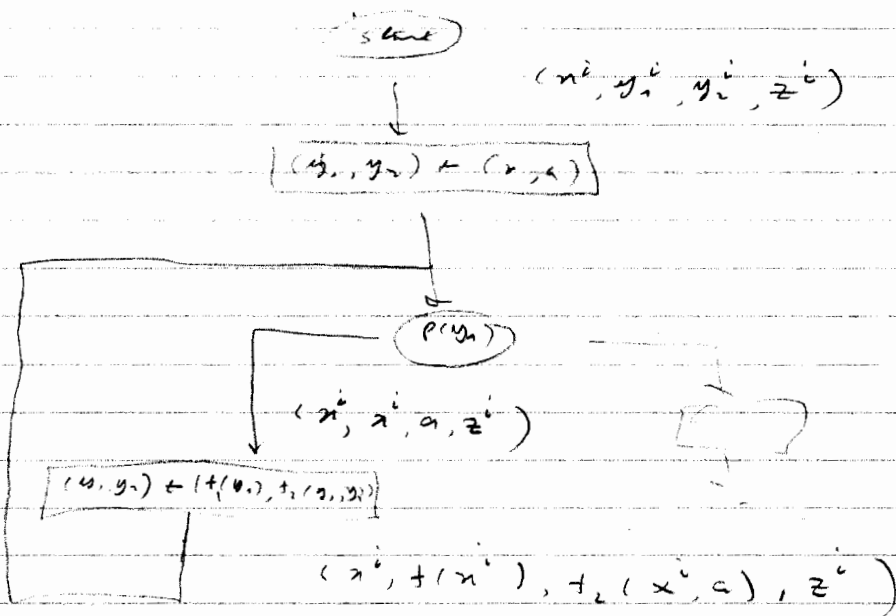 start
(x^i, y_1^i, y_2^i, z^i)
(y_1, y_2) ← (x, a)
p(y_1)
(x^i, x^i, a, z^i)
(y_1, y_2) ← (f_1(y_1), f_2(y_1, y_2))
(x^i, f(x^i), f_2(x^i, a), z^i)